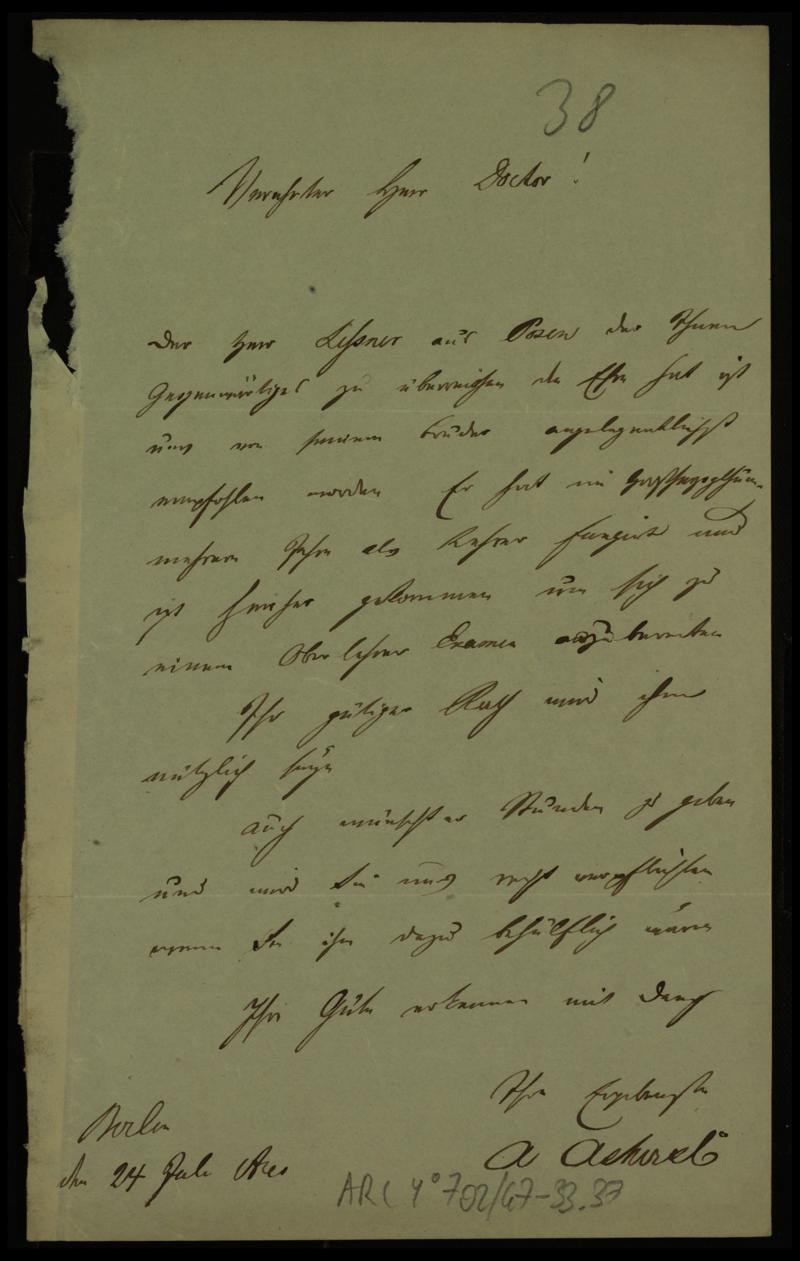 38
Verehrter Herr Doctor!
Der Herr Leßner aus Posen der Ihnen
Gegenwärtiges zu überreichen die Ehre hat ist
uns von seinem Bruder angelegentlichst
empfohlen worden Er hat im
mehrere Jahre als Lehrer fungirt und
ist hierher gekommen um sich zu
einem Oberlehrer Examen vorzubereiten
Ihr gütiger Rath wird ihm
nützlich sein
Auch wünscht er Stunden zu geben
und wird Sie uns recht verpflichten
wenn Sie ihm dazu behülflich wären
Ihre Güte erkennen mit Dank
Ihre Ergebenste
A
Berlin
den 24 Juli
ARC 4° 702/47-33.37